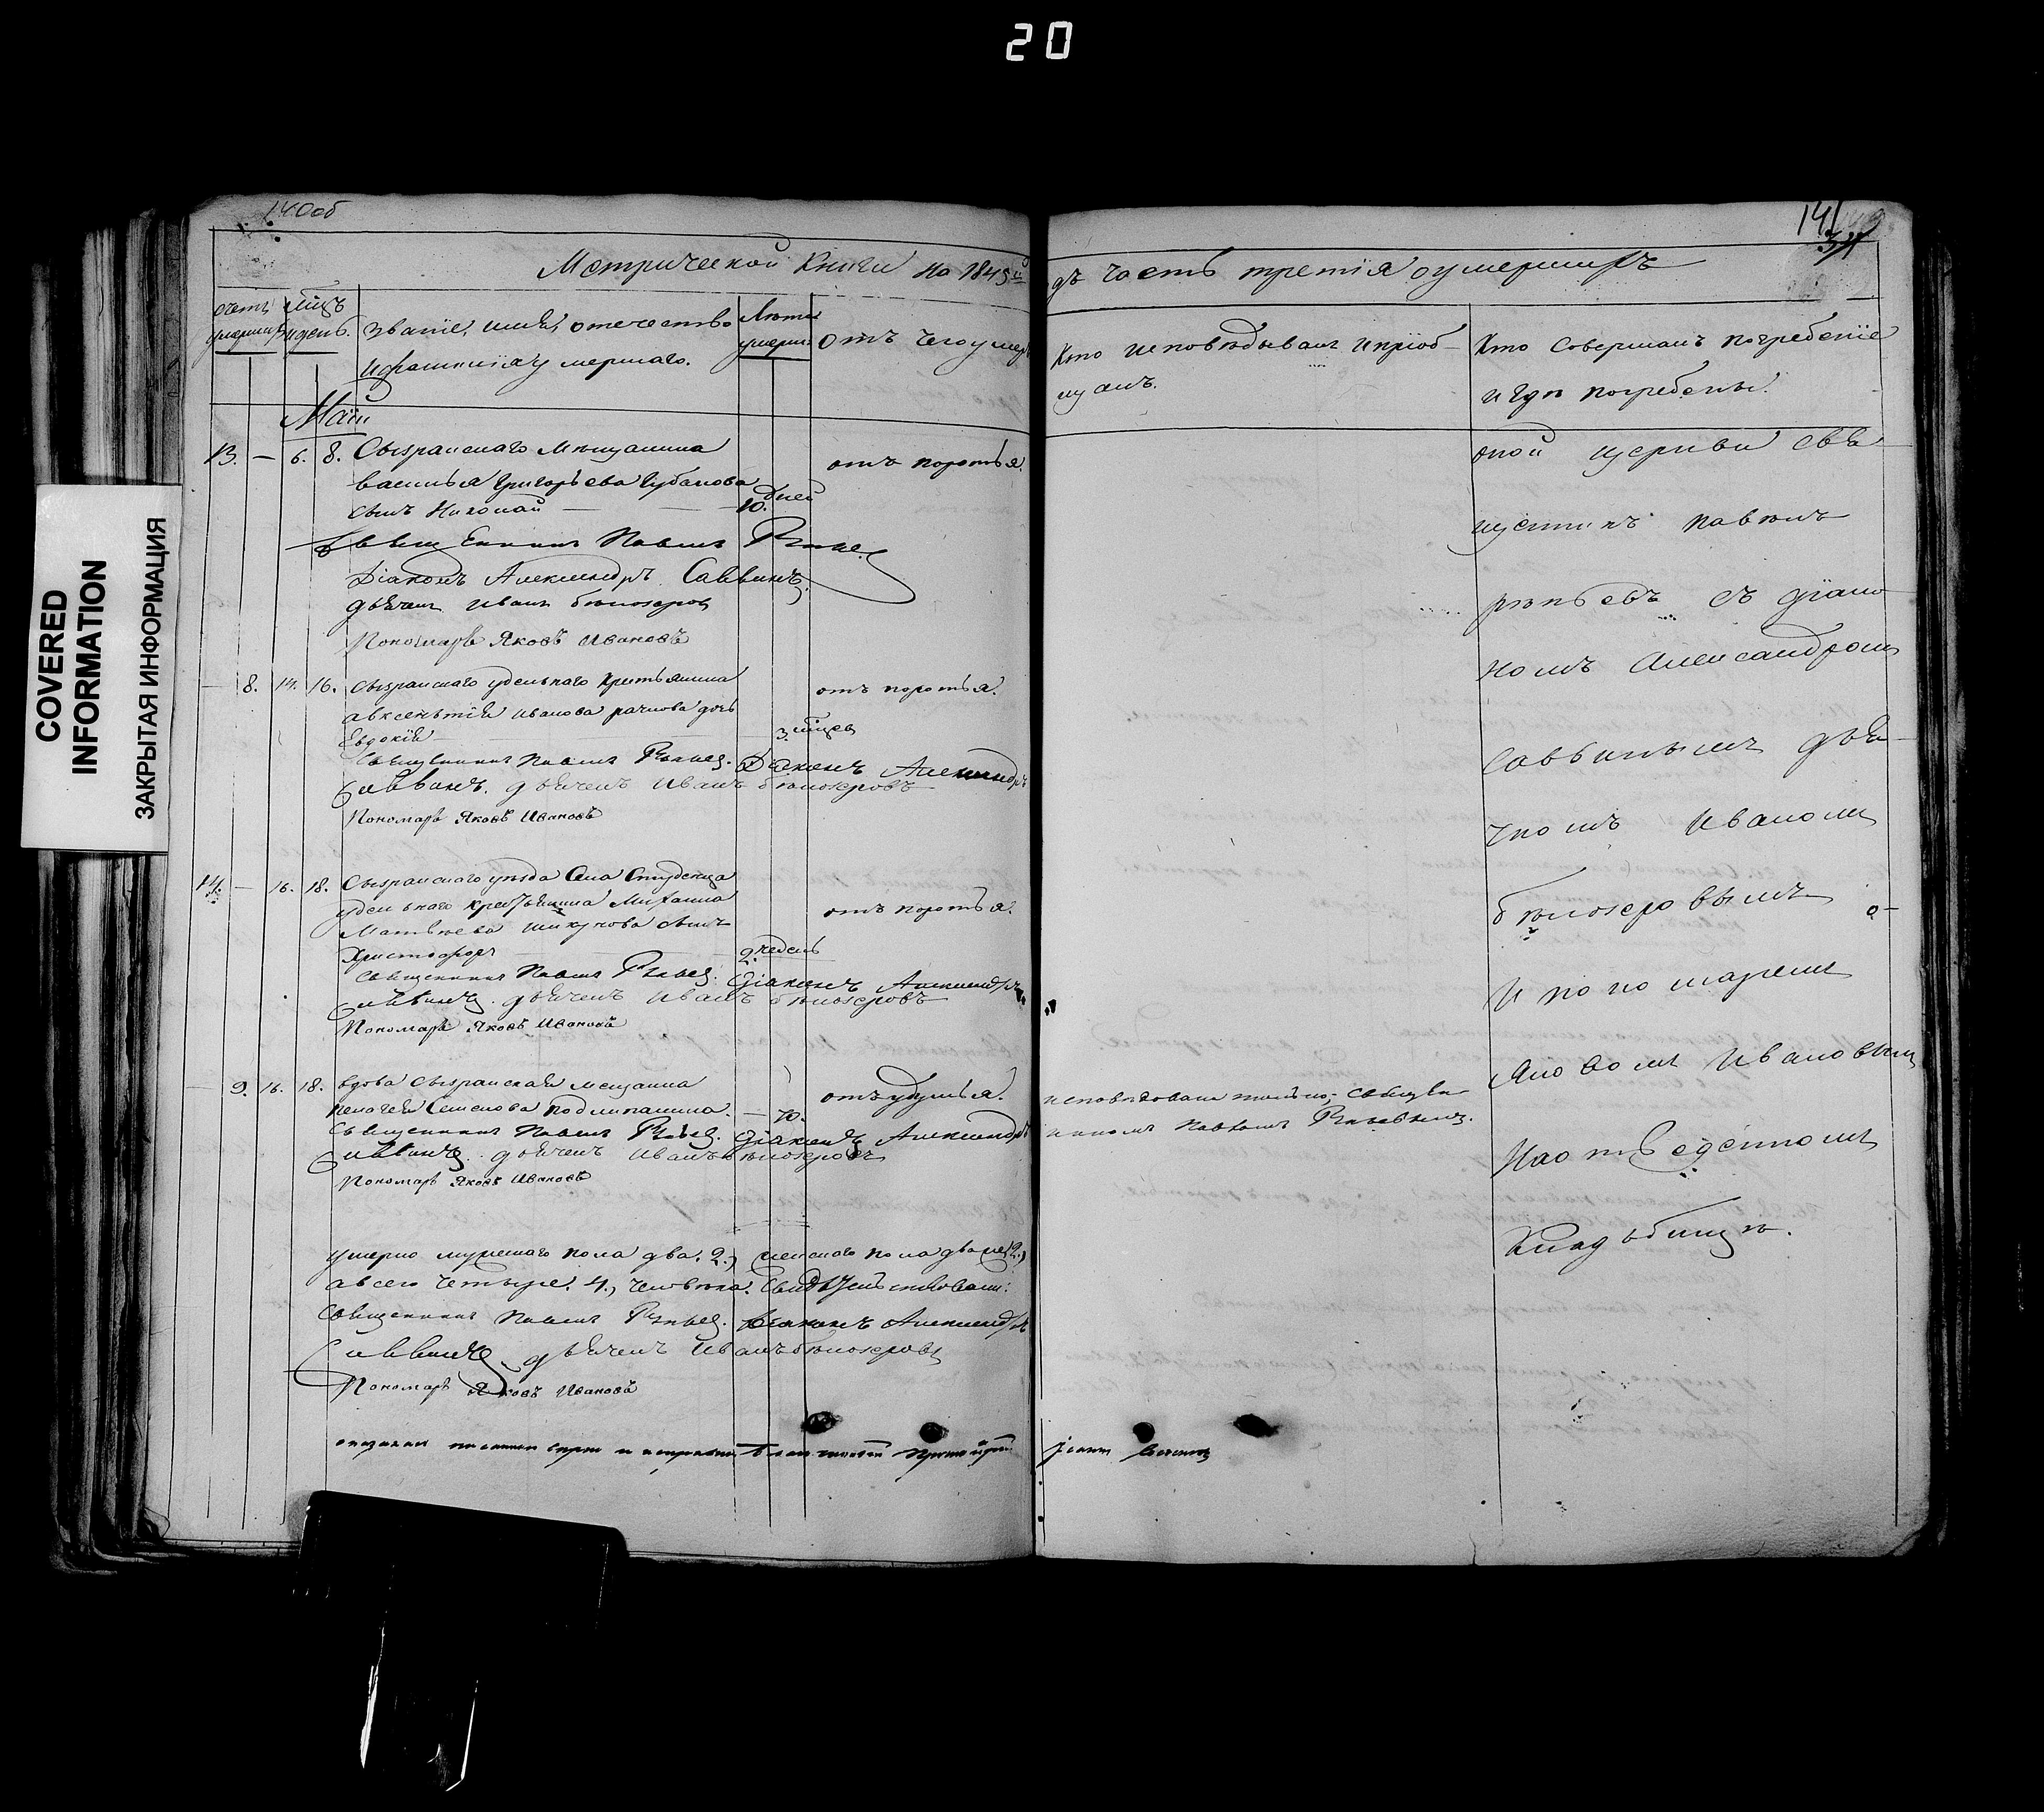 20
140об
141
37
COVERED
INFORMATION
ЗАКРЫТАЯ ИНФОРМАЦИЯ
Метрической Книги на 1845й
дъ часть третія оумершихъ
счетъ умершихъ
мцъ и день
званіе, имя, отечество
и фамилія умершаго.
Лета умерш:
отъ чего умеръ
Кто исповѣдывалъ и пріоб-
щалъ.
Кто совершалъ погребеніе
и гдѣ погребены.
Май
13. — 6. 8. Сызранскаго мѣщанина
василья григорьева губанова
сынъ Николай — 10. дней
отъ поротья.
Священникъ Павелъ Рѣпьев
Діаконъ Александръ Саввинъ
дьячекъ иванъ бѣлозеровъ
Пономарь Яковъ Ивановъ
— 8. 14. 16. Сызранскаго удельнаго крестьянина
авксентія иванова рачкова дочь
Евдокія 3. мцев
отъ поротья.
Священникъ Павелъ Рѣпьев. Діаконъ Александръ
Саввинъ. дьячекъ иванъ бѣлозеровъ
Пономарь Яковъ Ивановъ
14. — 16. 18. Сызранскаго уѣзда Села Студенца
удельнаго крестьянина Михаила
Матвѣева сынъ
Христофоръ 2. недель
отъ поротья.
Священникъ Павелъ Рѣпьев. Діаконъ Александръ
Саввинъ. дьячекъ иванъ бѣлозеровъ
Пономарь Яковъ Ивановъ
— 9. 16. 18. вдова Сызранская мещанка
пелагея Семенова подлипалина. — 70.
отъ удушья.
исповедована только, священ-
никомъ Павломъ Рѣпьевымъ.
Священникъ Павелъ Рѣпьев. Діаконъ Александръ
Саввинъ. дьячекъ иванъ бѣлозеровъ
Пономарь Яковъ Ивановъ
умерло мужескаго пола два. 2., женскаго пола две (2.)
а всего четыре. 4., человѣка. Свидѣтельствовали:
Священникъ Павелъ Рѣпьев. Діаконъ Александръ
Саввинъ дьячекъ иванъ бѣлозеровъ
Пономарь Яковъ Ивановъ
оной церкви свя-
щенникъ павелъ
рѣпьевъ съ діако-
номъ Александромъ
Саввинымъ дья-
чкомъ Иваномъ
бѣлозеровымъ
И пономаремъ
Яковомъ Ивановымъ
На отведенномъ
Кладбищѣ.